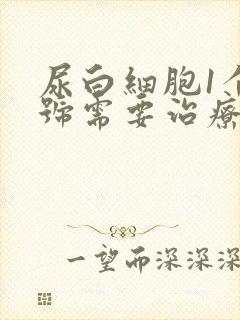 尿白細胞1个
號需要治療
一望而深深深